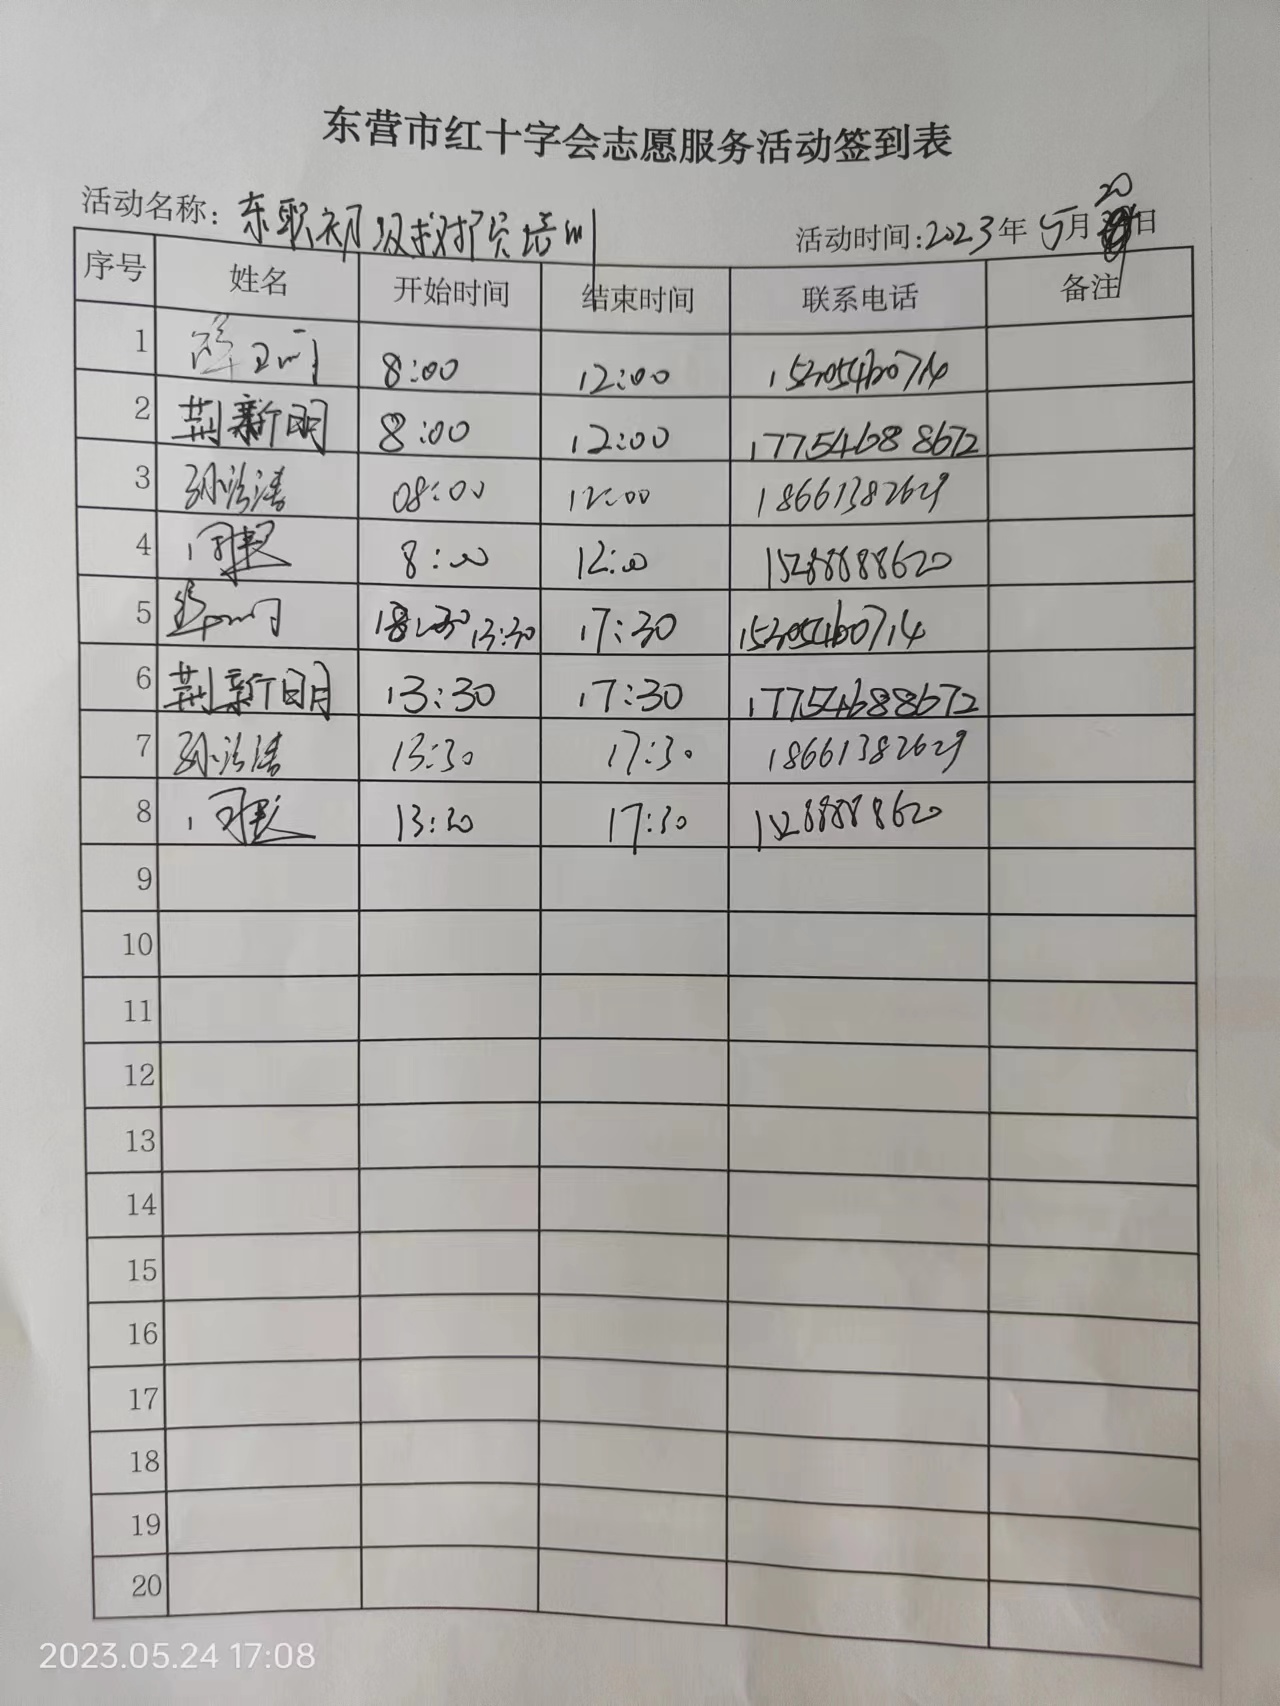 东营市红十字会志愿服务活动签到表
活动名称: 东职初级救护员培训 活动时间:2023年5月20日
序号 姓名 开始时间 结束时间 联系电话 备注
1 8:00 12:00 15305460714
2 荆新明 8:00 12:00 17754688672
3 孙治涛 08:00 12:00 18661382629
4 8:00 12:00 15288888620
5 13:30 17:30 15305460714
6 荆新明 13:30 17:30 17754688672
7 孙治涛 13:30 17:30 18661382629
8 13:30 17:30 15288888620
9
10
11
12
13
14
15
16
17
18
19
20
2023.05.24 17:08